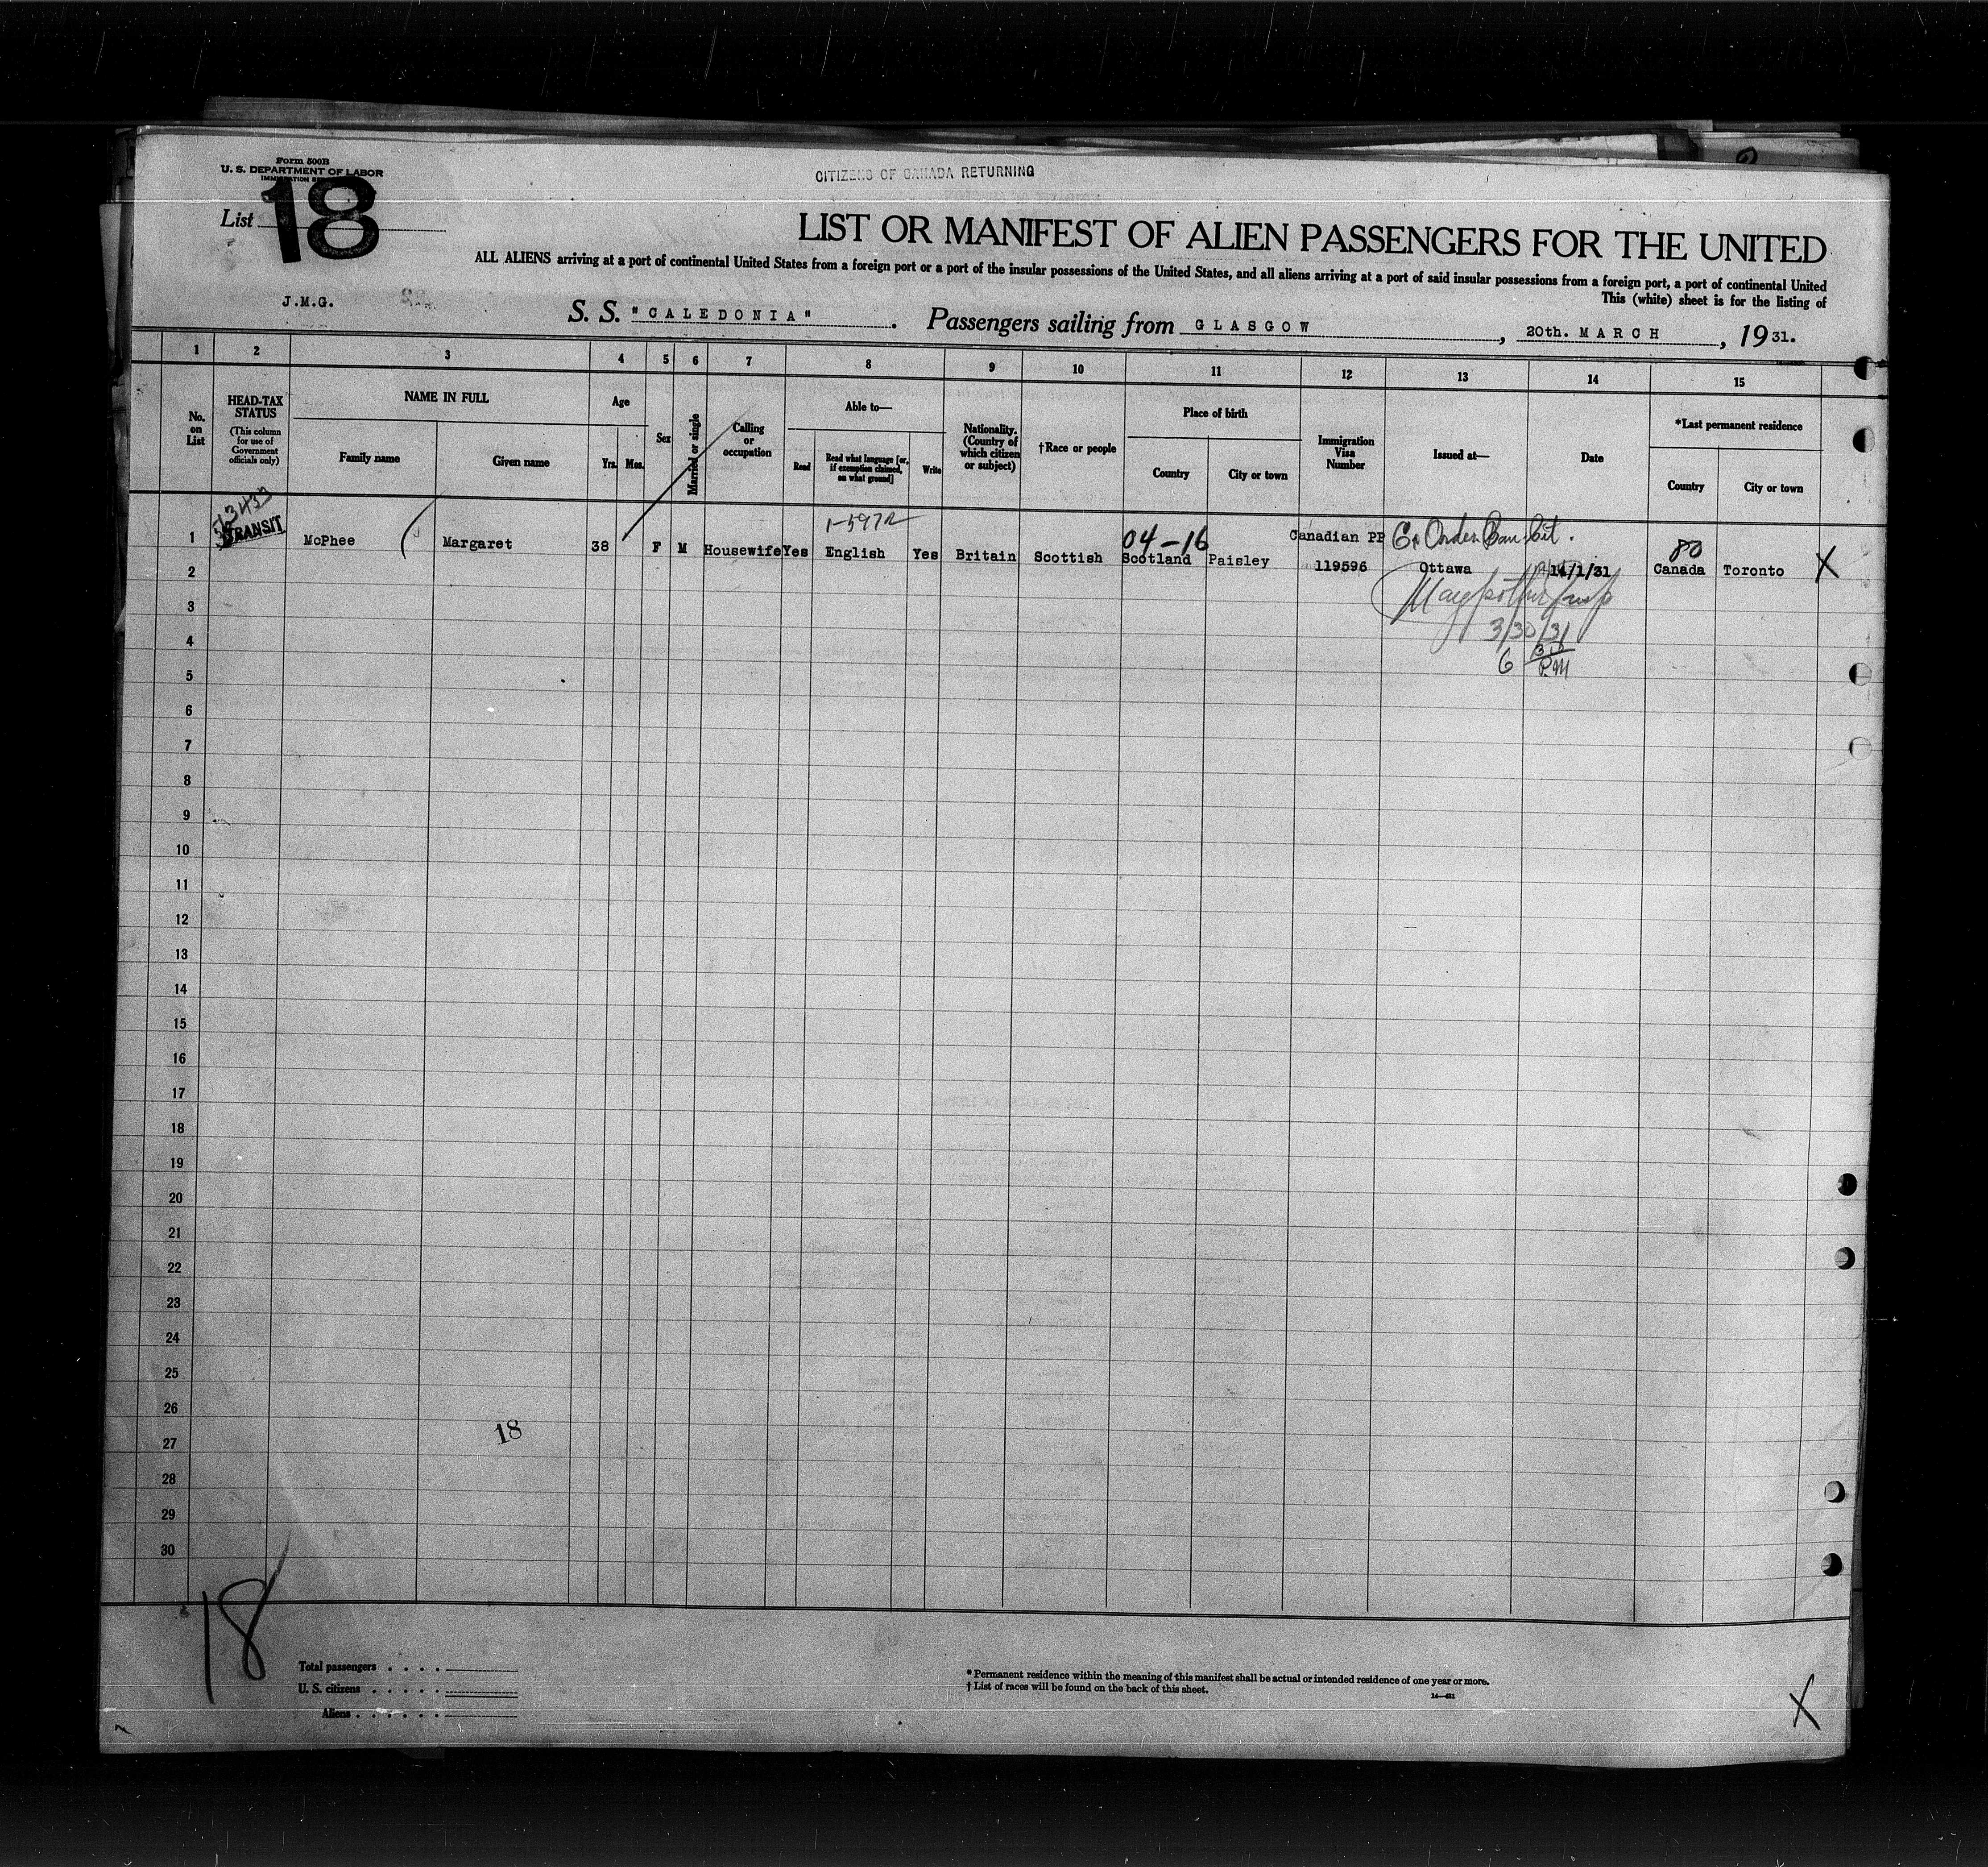 Form 500B
U. S. DEPARTMENT OF LABOR
CITIZENS OF CANADA RETURNING
List 18
LIST OR MANIFEST OF ALIEN PASSENGERS FOR THE UNITED
ALL ALIENS arriving at a port of continental United States from a foreign port or a port of the insular possessions of the United States, and all aliens arriving at a port of said insular possessions from a foreign port, a port of continental United
This (white) sheet is for the listing of
J.M.G.
S. S. "CALEDONIA". Passengers sailing from GLASGOW, 20th. MARCH, 1931.
1 2 3 4 5 6 7 8 9 10 11 12 13 14 15
No. on List
HEAD-TAX STATUS
(This column for use of Government officials only)
NAME IN FULL
Family name
Given name
Age
Yrs. Mos.
Sex
Married or single
Calling or occupation
Able to—
Read
Read what language [or, if exemption claimed, on what ground]
Write
Nationality. (Country of which citizen or subject)
†Race or people
Place of birth
Country
City or town
Immigration Visa Number
Issued at—
Date
*Last permanent residence
Country
City or town
TRANSIT
04-16
80
1 McPhee Margaret 38 F M Housewife Yes English Yes Britain Scottish Scotland Paisley Canadian PP 119596 Ottawa 14/1/31 Canada Toronto X
3/30/31
6
P.M
2
3
4
5
6
7
8
9
10
11
12
13
14
15
16
17
18
19
20
21
22
23
24
25
26
18
27
28
29
30
18
Total passengers . . . .
U. S. citizens . . . . .
Aliens . . . . . .
* Permanent residence within the meaning of this manifest shall be actual or intended residence of one year or more.
† List of races will be found on the back of this sheet.
X